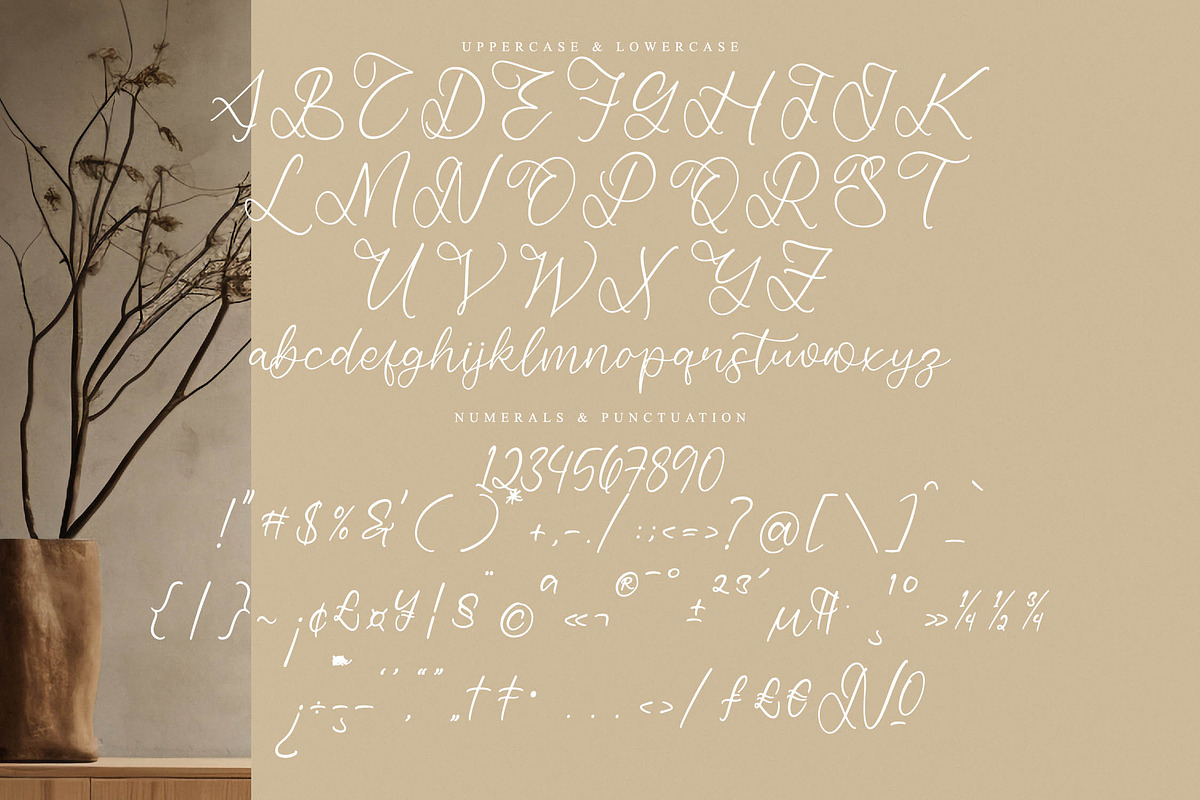 UPPERCASE & LOWERCASE
ABCDEFGHIJK
LMNOPQRST
UVWXYZ
abcdefghijklmnopqrstuvwxyz
NUMERALS & PUNCTUATION
1234567890
!"#$%&'()*+,-./:;<=>?@[\]^_`
{|}~¡¢£¤¥|§¨©ª«¬®¯°±²³´µ¶·¸¹º»¼½¾
¿÷‘’“”„†‡•...‹›/ƒ₤€№